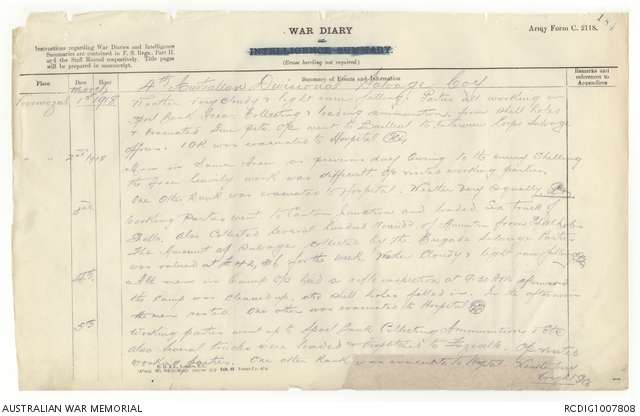 WAR DIARY
or
INTELLIGENCE SUMMARY.
(Erase heading not required.)
Army Form C. 2118.
Instructions regarding War Diaries and Intelligence
Summaries are contained in F. S. Regs., Part II.
and the Staff Manual respectively. Title pages
will be prepared in manuscript.
Place Date Hour Summary of Events and Information Remarks and references to Appendices
4th Australian Divisional Salvage Coy
March 1st 1918 Weather very cloudy & light rain falling. Parties all working in
Spoil Bank Area Collecting & loading ammunition, from shell holes
& evacuated Gun pits. OC went to to interview Corps Salvage
Officer. 1 OR was evacuated to Hospital
2nd 1918 Men in same area as previous day Owing to the enemy shelling
the area heavily work was difficult OC visited working parties.
One Other Rank was evacuated to Hospital. Weather very squally
3rd Working Parties went to Junction and loaded Six truck of
Shells. Also Collected several hundred rounds of from Shell holes
The Amount of Salvage Collected by the Brigade Salvage Parties
was valued at for the week Weather Cloudy & light rain falling
4th All men in Camp OC held a rifle inspection at 9.30 AM afterwards
the Camp was cleaned up, old shell holes filled in. In the afternoon
the men rested. One other was evacuated to Hospital
5th Working parties went up to Spoil Bank Collecting Ammunition & Etc
also several trucks were loaded & to OC visited
working parties. One other Rank was evacuated to Hospital.
AUSTRALIAN WAR MEMORIAL
RCDIG1007808